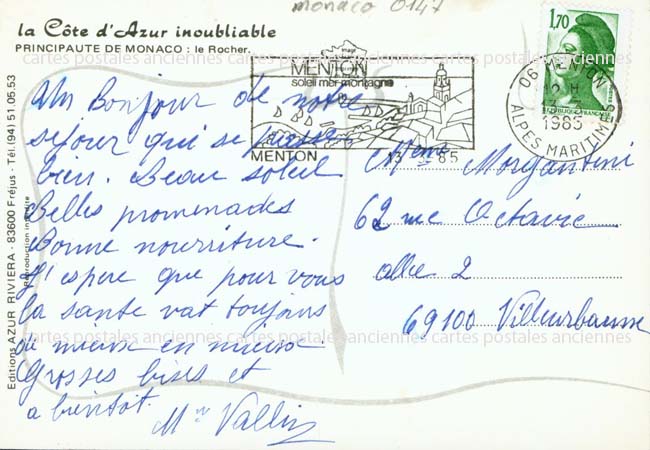 monaco 0147
la Côte d'Azur inoubliable
PRINCIPAUTE DE MONACO : le Rocher.
cartes postales anciennes
1,70
MENTON
soleil mer montagne
MENTON
13 - 3 85
06 MENTON
12 H
13 - 3
1985
ALPES MARITIMES
Un Bonjour de notre
séjour qui se passe
bien. Beau soleil
Belles promenades
Bonne nourriture.
J'espere que pour vous
la santé vat toujours
de mieux en mieux
Grosses bises et
a bientot.
Mme Vallin
Mme Morgantini
62 rue Octavie
allee 2
69100 Villeurbanne
cartes postales anciennes
Editions AZUR RIVIERA - 83600 Fréjus - Tél. (94) 51.05.53
Reproduction interdite